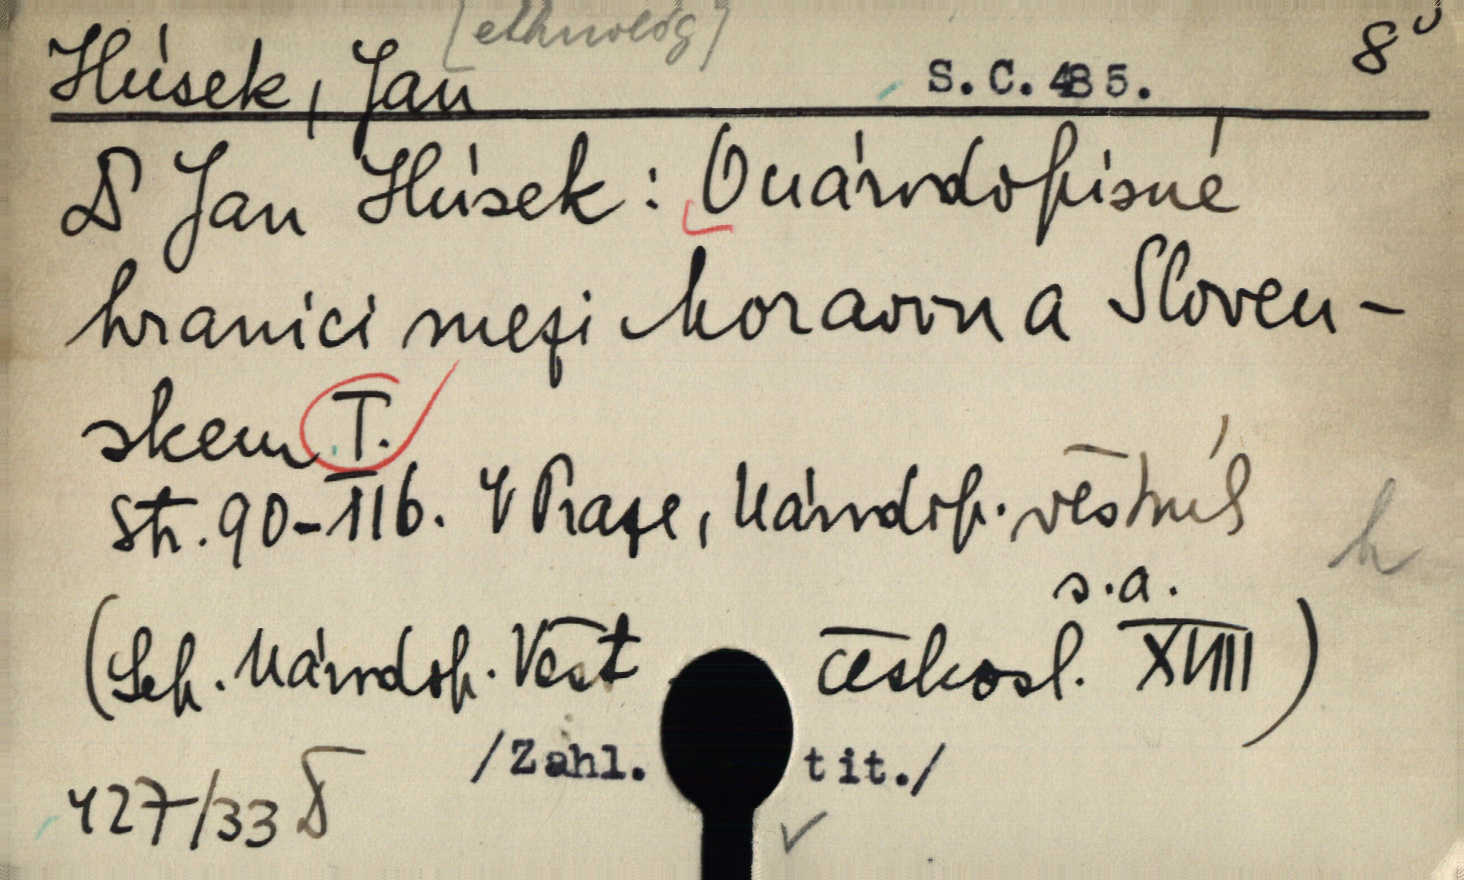 [ethnolog]
Húsek, Jan S.C. 485. 8°
D Jan Húsek: O národopisné
hranici mezi Moravou a Sloven-
skem I.
Str. 90-116. V Praze, Národop. věstník
s.a.
(Sep. Národop. Věst českosl. XVIII)
/Zahl. tit./
427/33 D
h